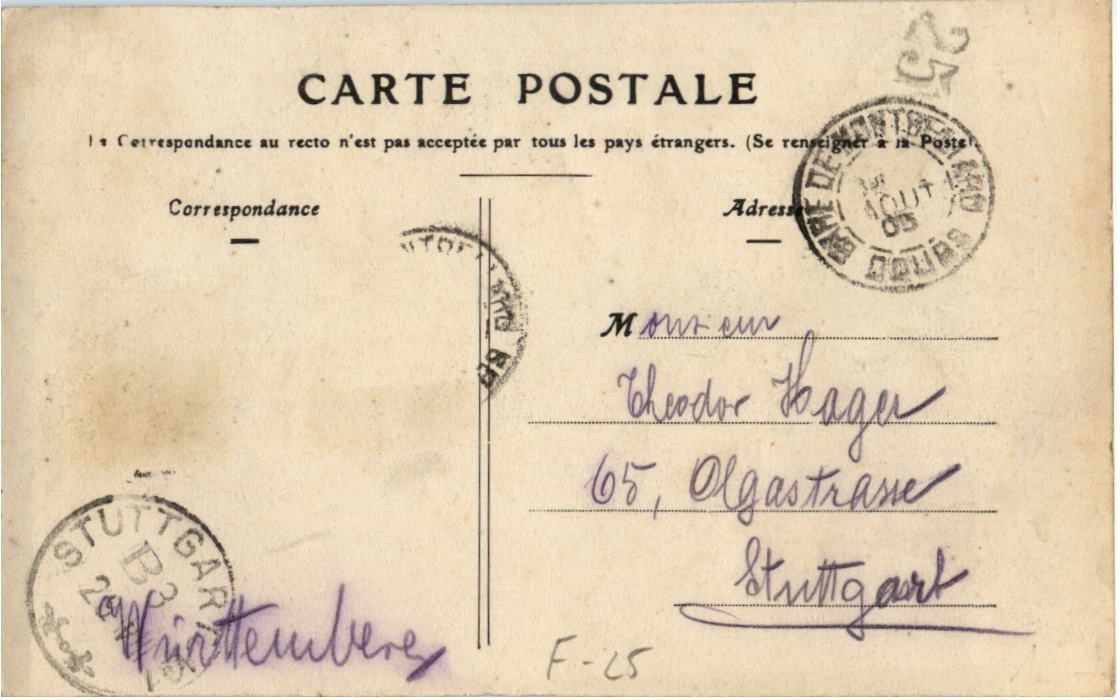 CARTE POSTALE
La Correspondance au recto n'est pas acceptée par tous les pays étrangers. (Se renseigner à la Poste).
Correspondance
Adresse
GARE DE MONTBELIARD
AOUT
05
DOUBS
25
Monsieur
Theodor Hager
65, Olgastrasse
Stuttgart
STUTTGART
B3
Württemberg
F-25